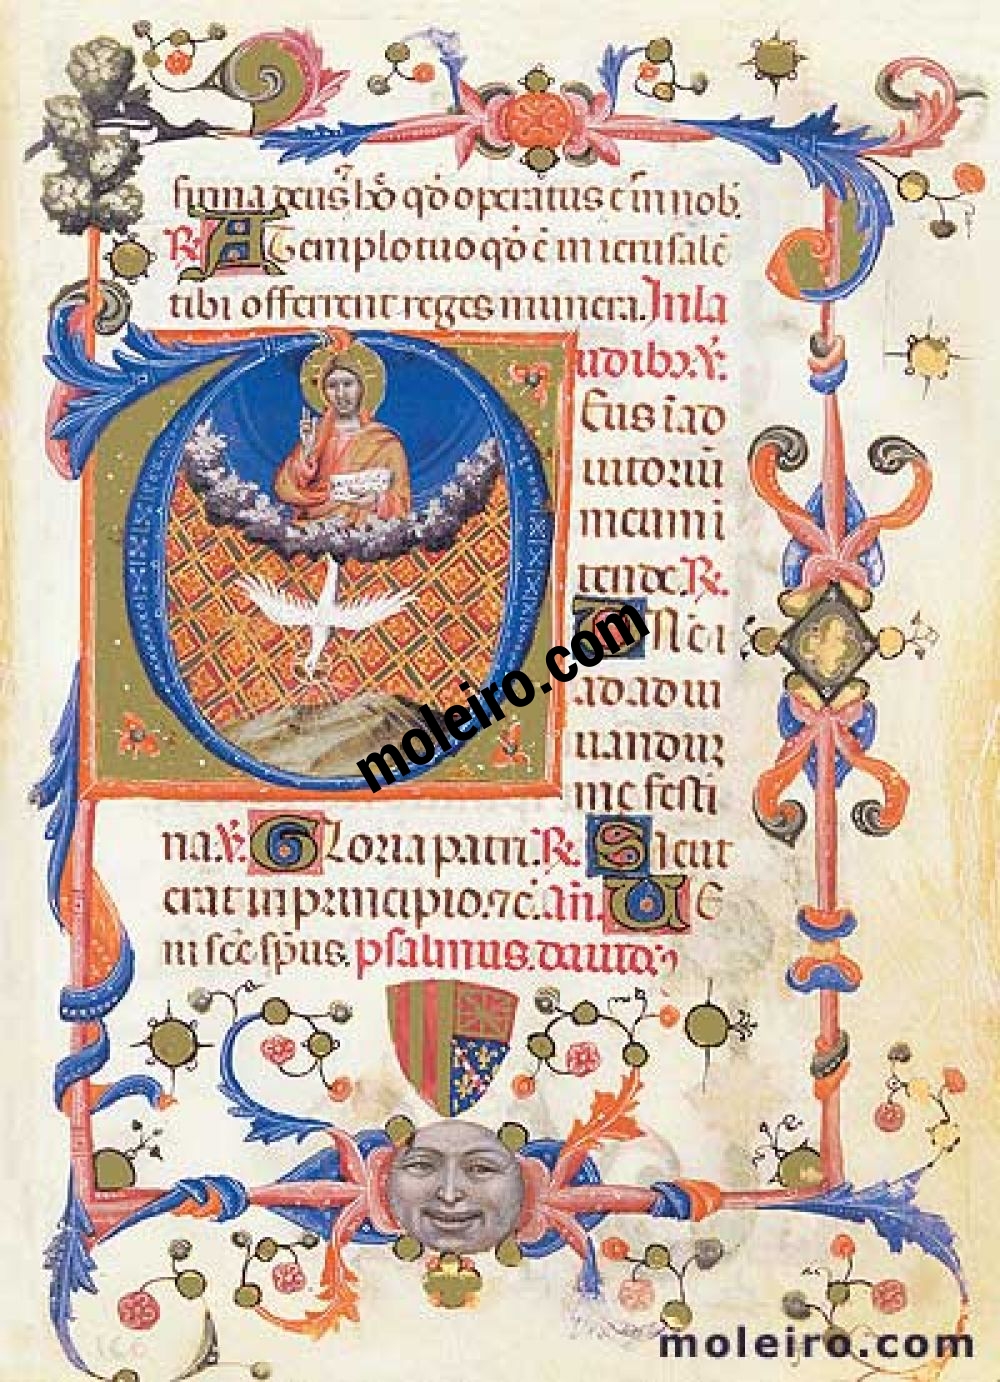 firma deus ħ qđ operatus ē in nob.
℟ A templo tuo qđ ē in ierusalē
tibi offerent reges munera. In la
udibꝫ. ℣.
Eus i ad
iutoriū
meum i
tende. ℟.
Dñe i
ad ad iu
uanduꝫ
me festi
na. ℣. Gloria patri. ℟. Sicut
erat in principio. ⁊c̄. añ. Ue
ni sc̄e sp̄us. psalmus. dauid.
moleiro.com
moleiro.com